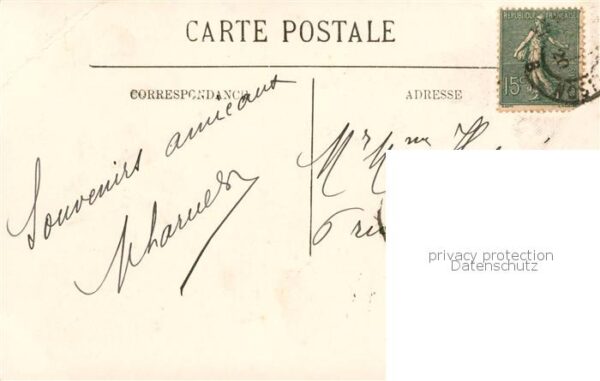 CARTE POSTALE
REPUBLIQUE FRANÇAISE
15c
CORRESPONDANCE
ADRESSE
Souvenirs amicaux
Mr Mme
privacy protection
Datenschutz